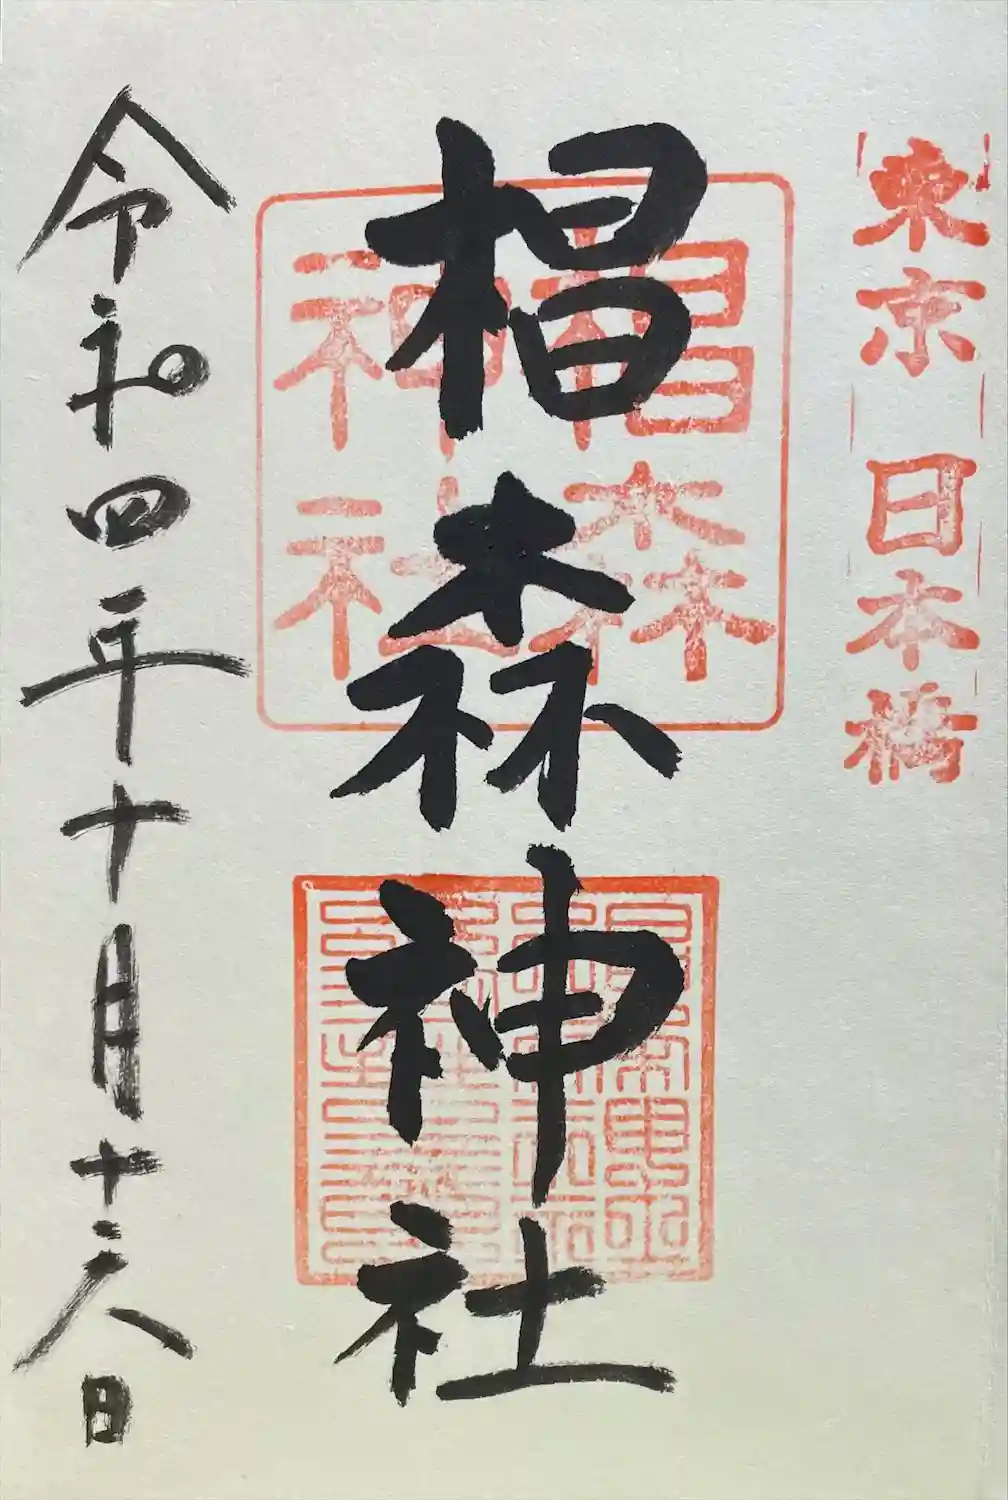 東京 日本橋
椙森神社
椙森
神社
令和四年十月十六日